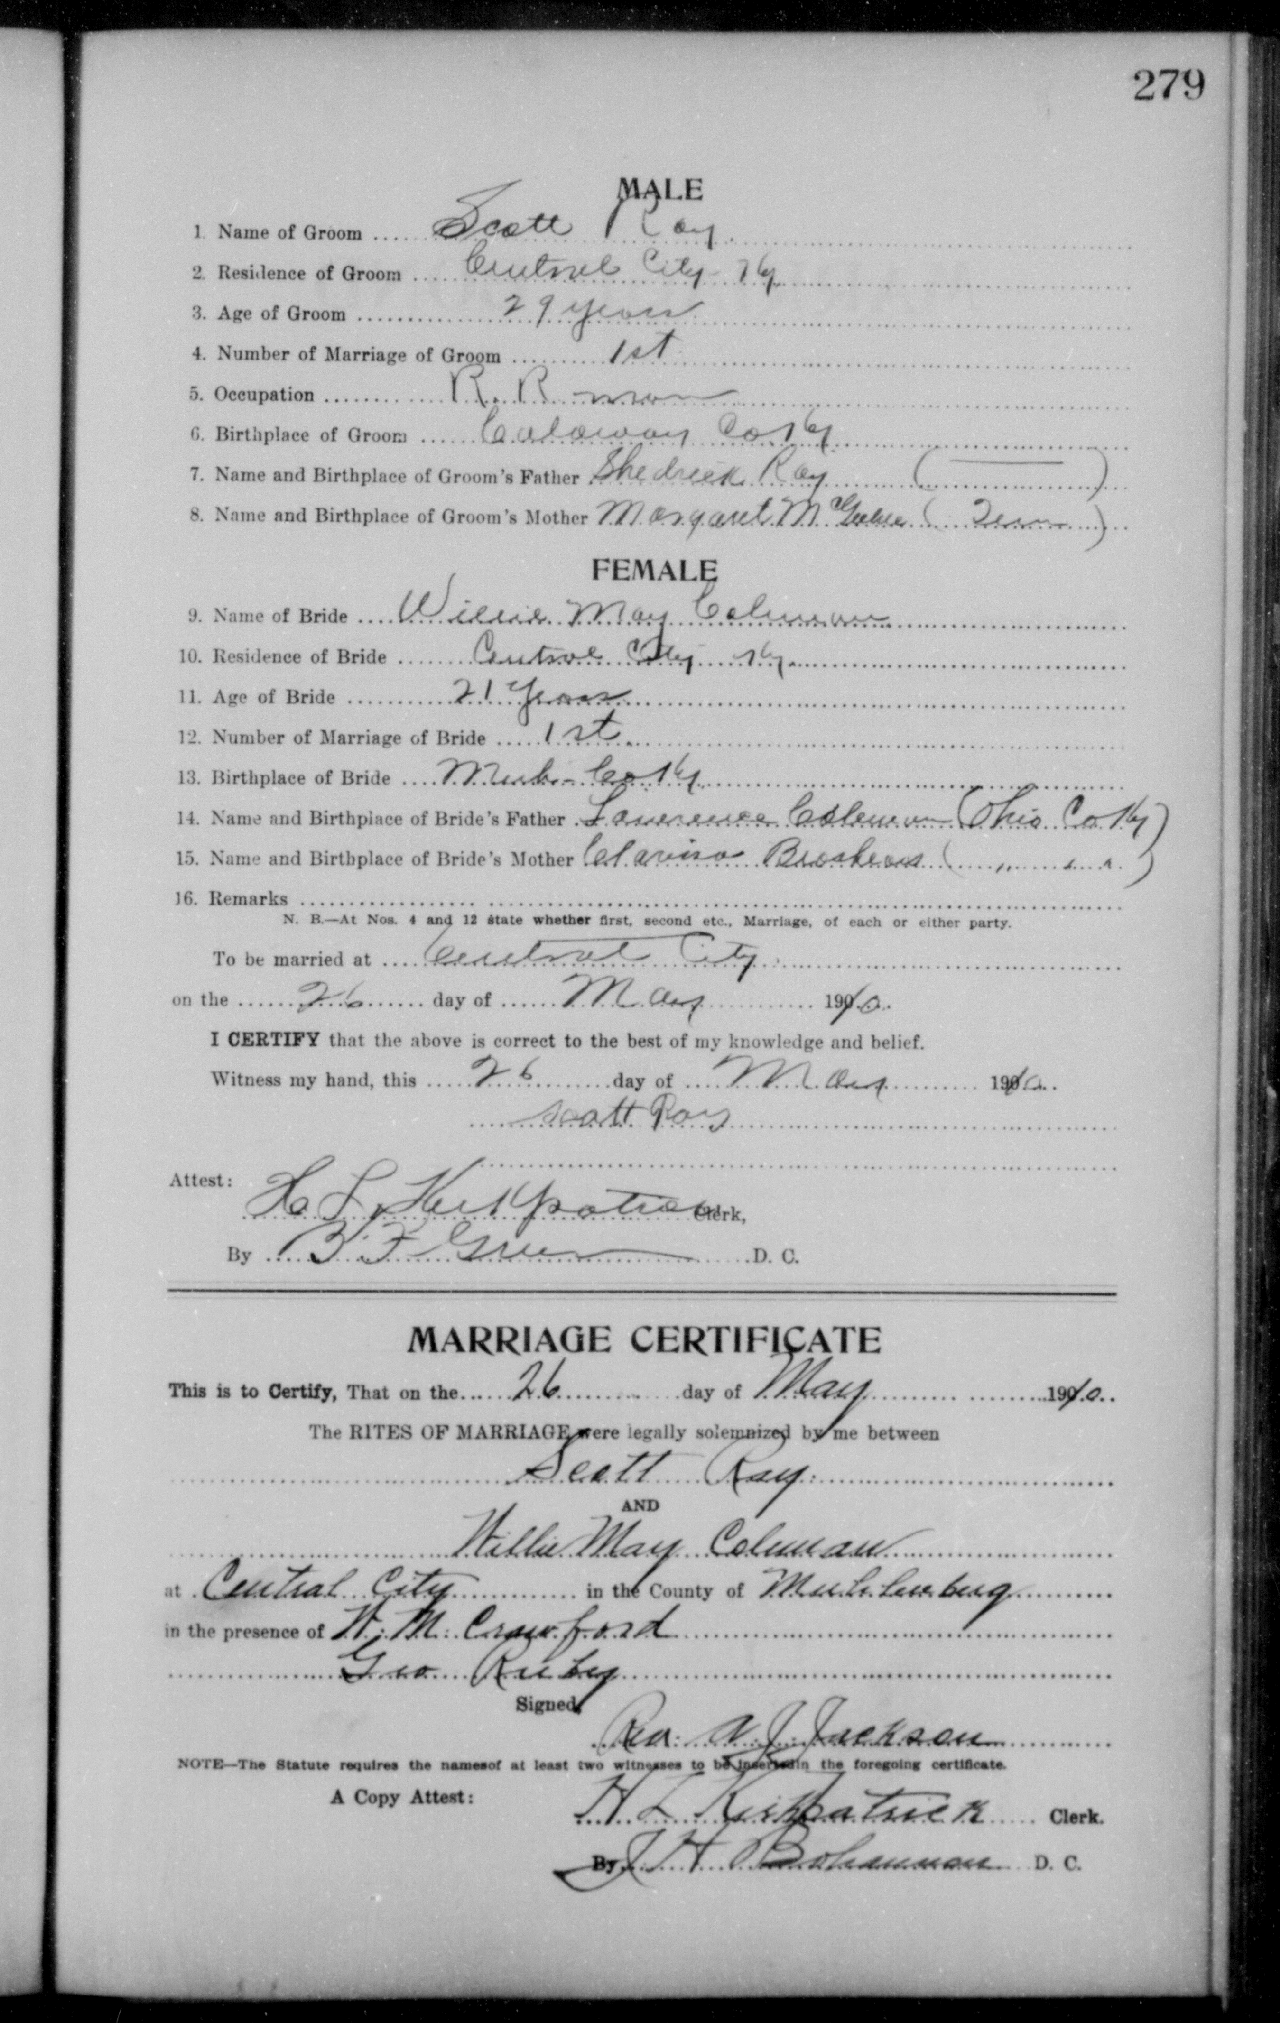 279
MALE
1. Name of Groom Scott Ray
2. Residence of Groom Central City Ky
3. Age of Groom 29 years
4. Number of Marriage of Groom 1st
5. Occupation R. R. man
6. Birthplace of Groom Calaway Co Ky
7. Name and Birthplace of Groom's Father Shedrick Ray ( — )
8. Name and Birthplace of Groom's Mother Margaret ( Tenn )
FEMALE
9. Name of Bride Willie May Coleman
10. Residence of Bride Central City Ky.
11. Age of Bride 21 years
12. Number of Marriage of Bride 1st.
13. Birthplace of Bride Muh- Co Ky
14. Name and Birthplace of Bride's Father Lawrence Coleman (Ohio Co Ky)
15. Name and Birthplace of Bride's Mother ( " " " )
16. Remarks
N. B.—At Nos. 4 and 12 state whether first, second etc., Marriage, of each or either party.
To be married at Central City
on the 26 day of May 1910.
I CERTIFY that the above is correct to the best of my knowledge and belief.
Witness my hand, this 26 day of May 1910.
Scott Ray
Attest:
H L Kirkpatrick Clerk,
By B. F. Green D. C.
MARRIAGE CERTIFICATE
This is to Certify, That on the 26 day of May 1910.
The RITES OF MARRIAGE were legally solemnized by me between
Scott Ray.
AND
Willie May Coleman
at Central City in the County of Muhlenberg
in the presence of W. M. Crawford
Geo Ruby
Signed
Rev. A J Jackson
NOTE—The Statute requires the namesof at least two witnesses to be insertedin the foregoing certificate.
A Copy Attest:
H L Kirkpatrick Clerk.
By J H Bohannon D. C.